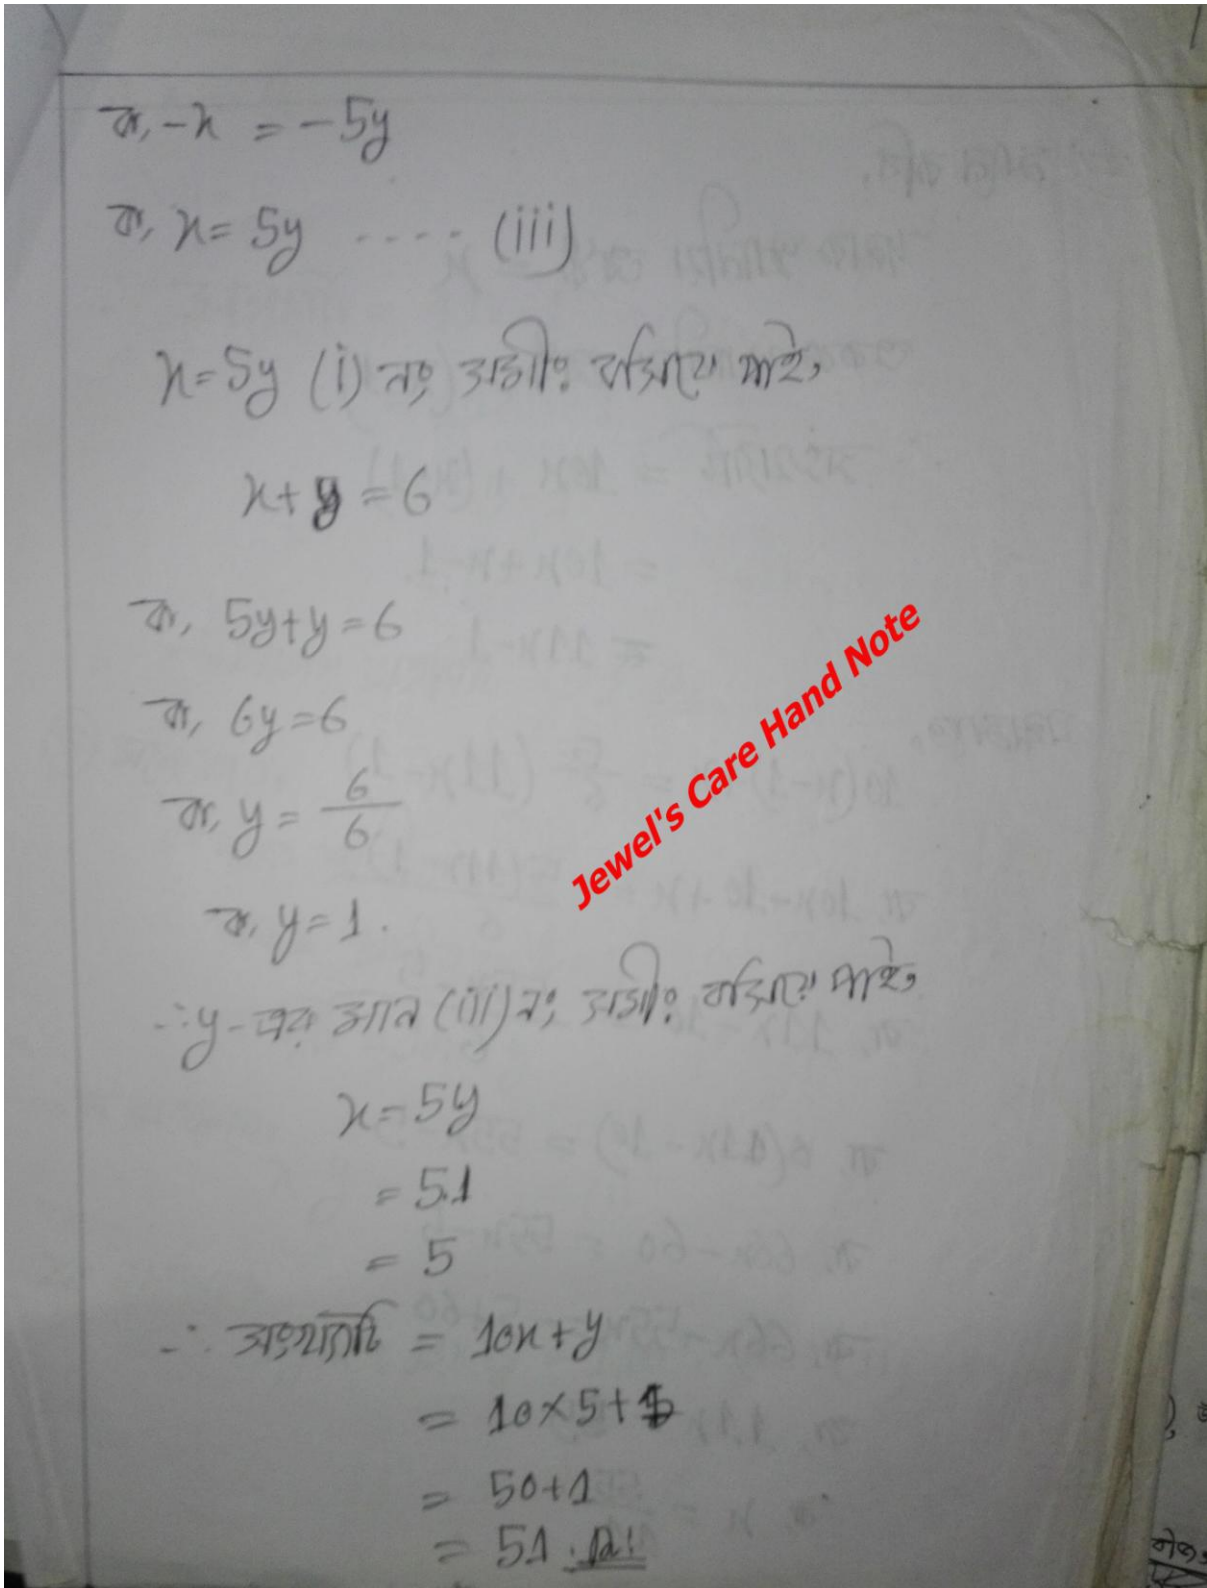 বা, -x = -5y
বা, x = 5y ---- (iii)
x = 5y (i) নং সমীঃ বসিয়ে পাই,
x + y = 6
বা, 5y + y = 6
বা, 6y = 6
বা, y = 6/6
বা, y = 1.
∴ y - এর মান (iii) নং সমীঃ বসিয়ে পাই,
x = 5y
= 5.1
= 5
∴ সংখ্যাটি = 10x + y
= 10 × 5 + 1
= 50 + 1
= 51.
Jewel's Care Hand Note